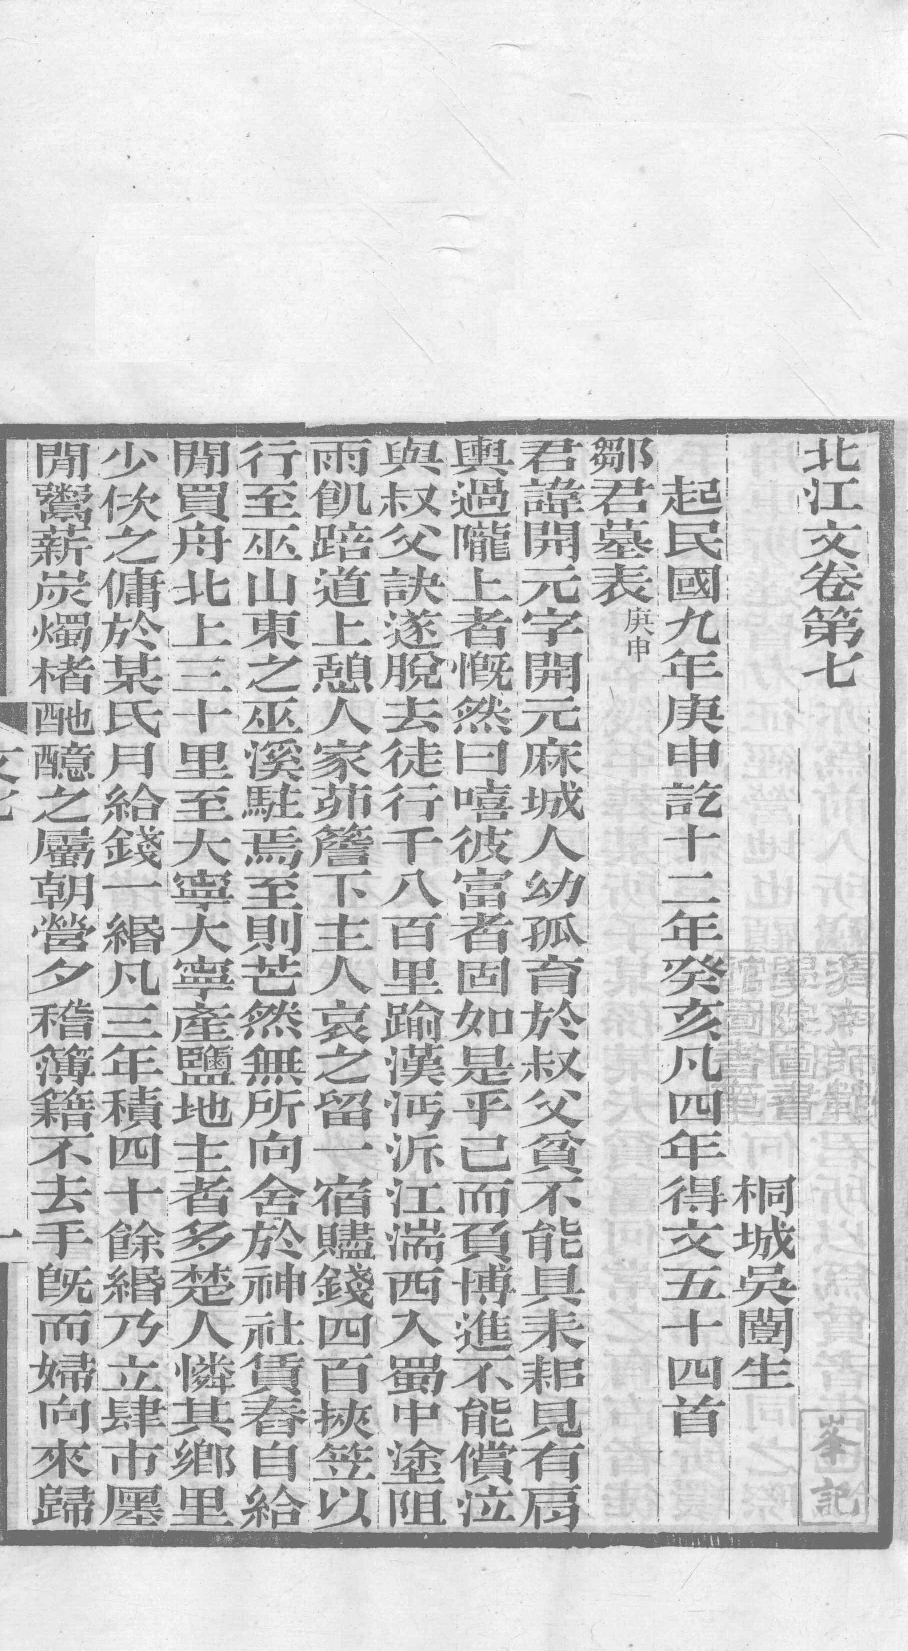 北江文卷第七
桐城吳闓生
起民國九年庚申訖十二年癸亥凡四年得文五十四首
鄒君墓表 庚申
君諱開元字開元麻城人幼孤育於叔父貧不能具耒耜見有肩
輿過隴上者慨然曰嘻彼富者固如是乎已而負博進不能償泣
與叔父訣遂脫去徒行千八百里踰漢沔泝江湍西入蜀中塗阻
雨飢踣道上憩人家茆簷下主人哀之留一宿贐錢四百挾笠以
行至巫山東之巫溪駐焉至則芒然無所向舍於神社賃舂自給
閒買舟北上三十里至大寧大寧產鹽地主者多楚人憐其鄉里
少佽之傭於某氏月給錢一緡凡三年積四十餘緡乃立肆市廛
閒鬻薪炭燭楮酏醷之屬朝營夕稽簿籍不去手旣而婦向來歸
峯記